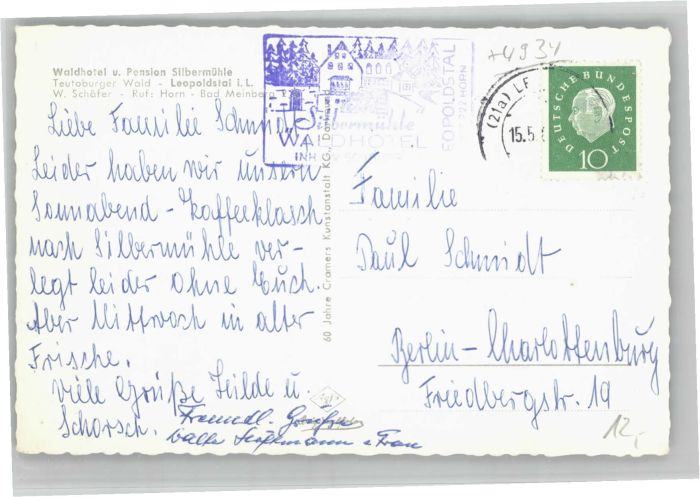 Waldhotel u. Pension Silbermühle
Teutoburger Wald - Leopoldstal i.L.
W. Schäfer - Ruf: Horn - Bad Meinberg
Liebe Familie Schmidt
Leider haben wir unseren
Sonnabend - Kaffeeklasch
nach Silbermühle ver-
legt leider ohne Euch.
Aber Mittwoch in alter
Frische.
Viele Grüße Heilde u.
Schorsch.
Freundl. Grüße
u. Frau
60 Jahre Cramers Kunstanstalt KG., Dortmund
Silbermühle
WALDHOTEL
INH.
LEOPOLDSTAL
ü/HORN
+4934
(21a) LE
15.5.6
DEUTSCHE BUNDESPOST
10
Familie
Paul Schmidt
Berlin-Charlottenburg
Friedbergstr. 19
12,-